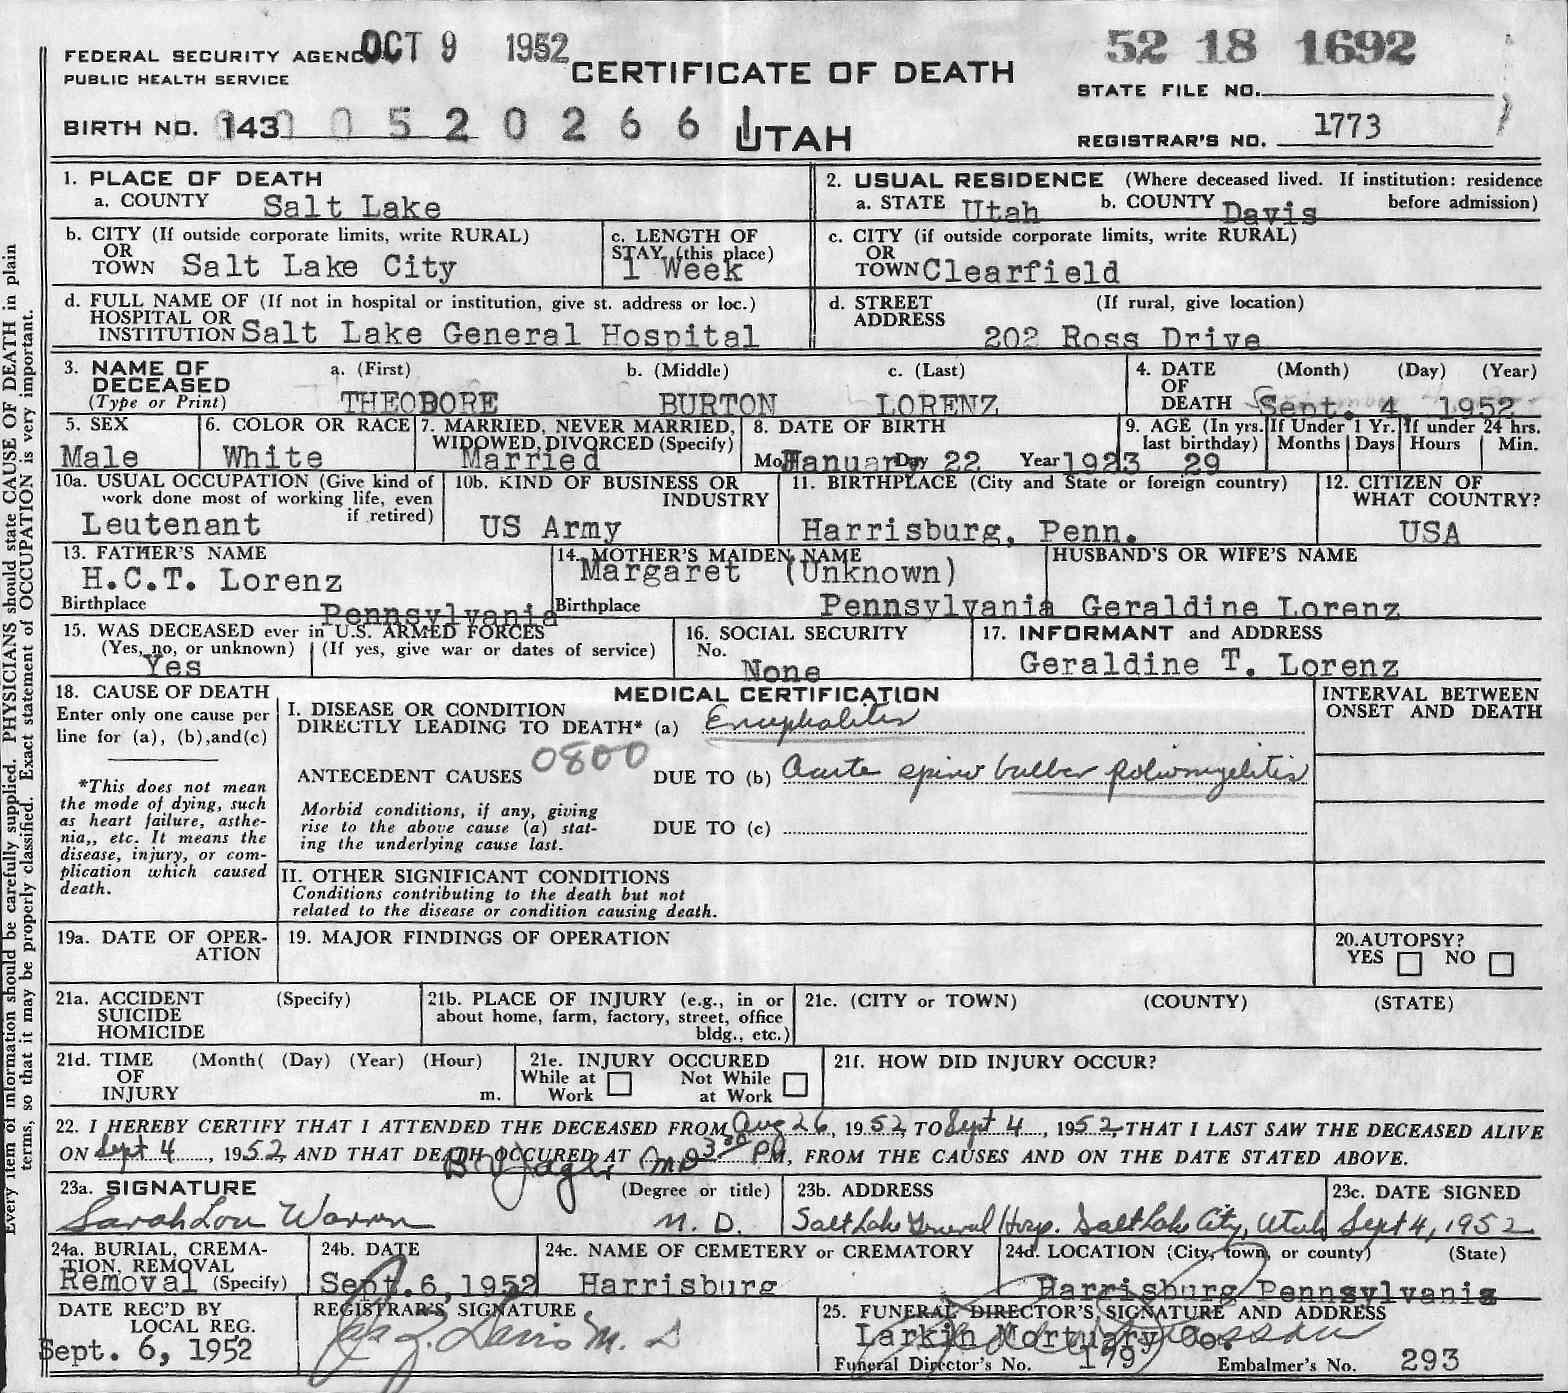 FEDERAL SECURITY AGENC OCT 9 1952
PUBLIC HEALTH SERVICE
CERTIFICATE OF DEATH
UTAH
52 18 1692
STATE FILE NO.
BIRTH NO. 143 0 5 2 0 2 6 6
REGISTRAR'S NO. 1773
1. PLACE OF DEATH
a. COUNTY Salt Lake
2. USUAL RESIDENCE (Where deceased lived. If institution: residence before admission)
a. STATE Utah b. COUNTY Davis
b. CITY (If outside corporate limits, write RURAL)
OR
TOWN Salt Lake City
c. LENGTH OF
STAY (this place)
1 Week
c. CITY (if outside corporate limits, write RURAL)
OR
TOWN Clearfield
d. FULL NAME OF (If not in hospital or institution, give st. address or loc.)
HOSPITAL OR
INSTITUTION Salt Lake General Hospital
d. STREET (If rural, give location)
ADDRESS
202 Ross Drive
3. NAME OF a. (First) b. (Middle) c. (Last)
DECEASED
(Type or Print) THEODORE BURTON LORENZ
4. DATE (Month) (Day) (Year)
OF
DEATH Sept. 4, 1952
5. SEX
Male
6. COLOR OR RACE
White
7. MARRIED, NEVER MARRIED,
WIDOWED, DIVORCED (Specify)
Married
8. DATE OF BIRTH
Mo. January Day 22 Year 1923
9. AGE (In yrs. last birthday)
29
If Under 1 Yr.
Months Days
If under 24 hrs.
Hours Min.
10a. USUAL OCCUPATION (Give kind of
work done most of working life, even
if retired)
Leutenant
10b. KIND OF BUSINESS OR
INDUSTRY
US Army
11. BIRTHPLACE (City and State or foreign country)
Harrisburg, Penn.
12. CITIZEN OF
WHAT COUNTRY?
USA
13. FATHER'S NAME
H.C.T. Lorenz
Birthplace Pennsylvania
14. MOTHER'S MAIDEN NAME
Margaret (Unknown)
Birthplace Pennsylvania
HUSBAND'S OR WIFE'S NAME
Geraldine Lorenz
15. WAS DECEASED ever in U.S. ARMED FORCES
(Yes, no, or unknown) (If yes, give war or dates of service)
Yes
16. SOCIAL SECURITY
No.
None
17. INFORMANT and ADDRESS
Geraldine T. Lorenz
18. CAUSE OF DEATH
Enter only one cause per
line for (a), (b),and(c)
*This does not mean
the mode of dying, such
as heart failure, asthe-
nia,, etc. It means the
disease, injury, or com-
plication which caused
death.
MEDICAL CERTIFICATION
INTERVAL BETWEEN
ONSET AND DEATH
I. DISEASE OR CONDITION
DIRECTLY LEADING TO DEATH* (a) Encephalitis
0800
ANTECEDENT CAUSES DUE TO (b) Acute spino bulbar poliomyelitis
Morbid conditions, if any, giving
rise to the above cause (a) stat-
ing the underlying cause last.
DUE TO (c)
II. OTHER SIGNIFICANT CONDITIONS
Conditions contributing to the death but not
related to the disease or condition causing death.
19a. DATE OF OPER-
ATION
19. MAJOR FINDINGS OF OPERATION
20.AUTOPSY?
YES NO
21a. ACCIDENT (Specify)
SUICIDE
HOMICIDE
21b. PLACE OF INJURY (e.g., in or
about home, farm, factory, street, office
bldg., etc.)
21c. (CITY or TOWN) (COUNTY) (STATE)
21d. TIME (Month( (Day) (Year) (Hour)
OF
INJURY m.
21e. INJURY OCCURED
While at Work Not While at Work
21f. HOW DID INJURY OCCUR?
22. I HEREBY CERTIFY THAT I ATTENDED THE DECEASED FROM Aug 26, 1952, TO Sept 4, 1952, THAT I LAST SAW THE DECEASED ALIVE
ON Sept 4, 1952, AND THAT DEATH OCCURED AT 3 30 PM, FROM THE CAUSES AND ON THE DATE STATED ABOVE.
MD
23a. SIGNATURE (Degree or title)
Sarah Lou Warren M. D.
23b. ADDRESS
Salt Lake General Hosp. Salt Lake City, Utah
23c. DATE SIGNED
Sept 4, 1952
24a. BURIAL, CREMA-
TION, REMOVAL
Removal (Specify)
24b. DATE
Sept. 6, 1952
24c. NAME OF CEMETERY or CREMATORY
Harrisburg
24d. LOCATION (City, town, or county) (State)
Harrisburg Pennsylvania
DATE REC'D BY
LOCAL REG.
Sept. 6, 1952
REGISTRAR'S SIGNATURE
Davis M. D
25. FUNERAL DIRECTOR'S SIGNATURE AND ADDRESS
Larkin Mortuary Co.
Funeral Director's No. 179 Embalmer's No. 293
Every item of information should be carefully supplied. PHYSICIANS should state CAUSE OF DEATH in plain
terms, so that it may be properly classified. Exact statement of OCCUPATION is very important.